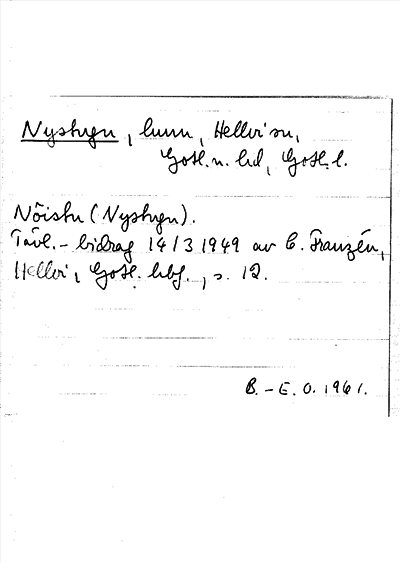 Nystugu, hmn, Hellvi sn,
Gotl. n. hd, Gotl. l.
Nöistu (Nystugu).
Tävl.-bidrag 14/3 1949 av C. Franzén,
Hellvi, Gotl. hbf., s. 12.
B.-E. O. 1961.